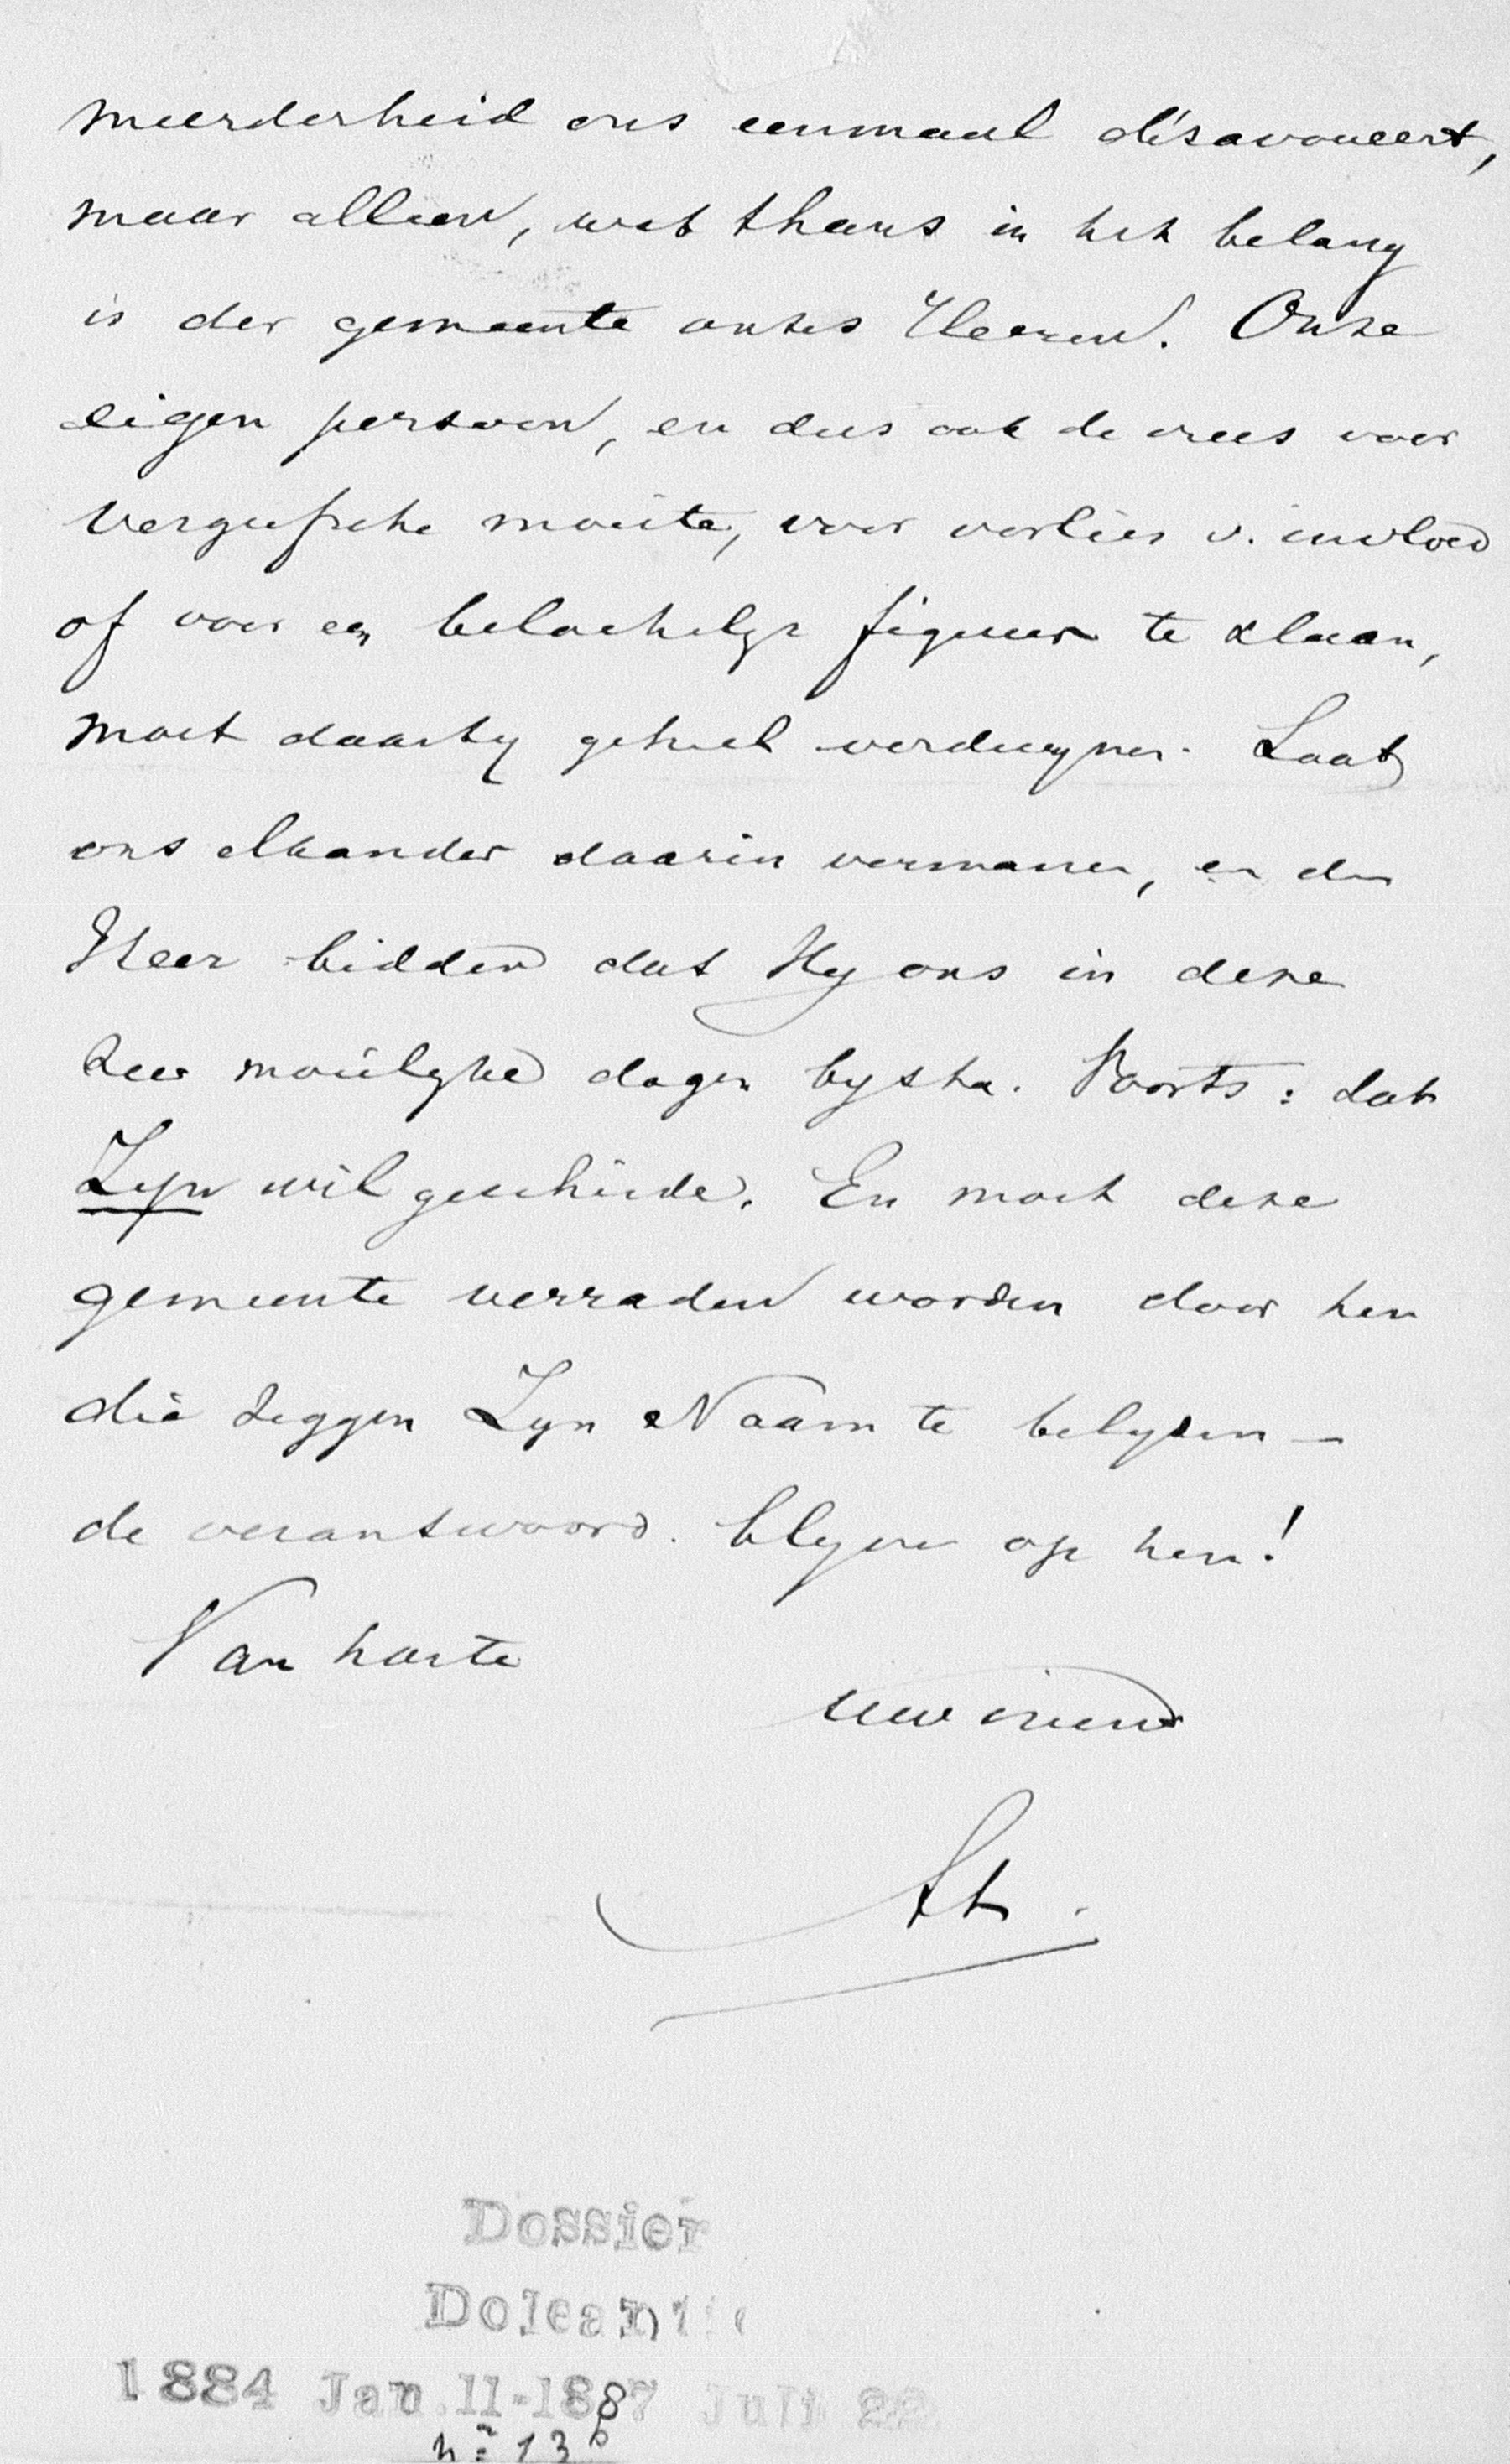 meerderheid ons eenmaal désavoueert,
maar alleen, wat thans in het belang
is der gemeente onzes Heeren. Onze
eigen persoon, en dus ook de vrees voor
vergeefsche moeite, voor verlies v. invloed
of voor een belachelyk figuur te slaan,
moet daarby geheel verdwynen. Laat
ons elkander daarin vermanen, en den
Heer bidden dat Hy ons in deze
zeer moeilyke dagen bysta. Voorts: dat
Zyn wil geschiede. En moet deze
gemeente verraden worden door hen
die zeggen Zyn Naam te belyden —
de verantwoord. blyve op hen!
Van harte
uw vriend
Dossier
Doleantie
1884 Jan. 11-1887 Juli 22
no 13b